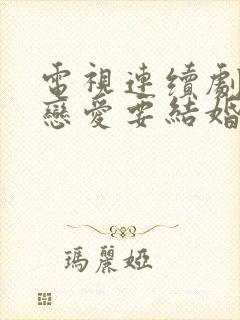 電視連續劇
戀愛要結婚
瑪麗婭